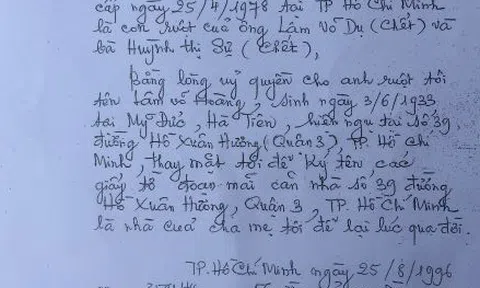 cấp ngày 25/4/1978 tại TP Hồ Chí Minh
là con ruột của ông Lâm Võ Dụ (chết) và
bà Huỳnh Thị Sự (chết),
Bằng lòng uỷ quyền cho anh ruột tôi
tên Lâm Võ Hoàng, sinh ngày 3/6/1933
tại Mỹ Đức, Hà Tiên, hiện ngụ tại số 39
đường Hồ Xuân Hương (Quận 3), TP. Hồ Chí
Minh, thay mặt tôi để ký tên các
giấy tờ đoạn mãi căn nhà số 39 đường
Hồ Xuân Hương, Quận 3, TP. Hồ Chí Minh
là nhà của cha mẹ tôi để lại lúc qua đời.
TP. Hồ Chí Minh ngày 25/8/1996